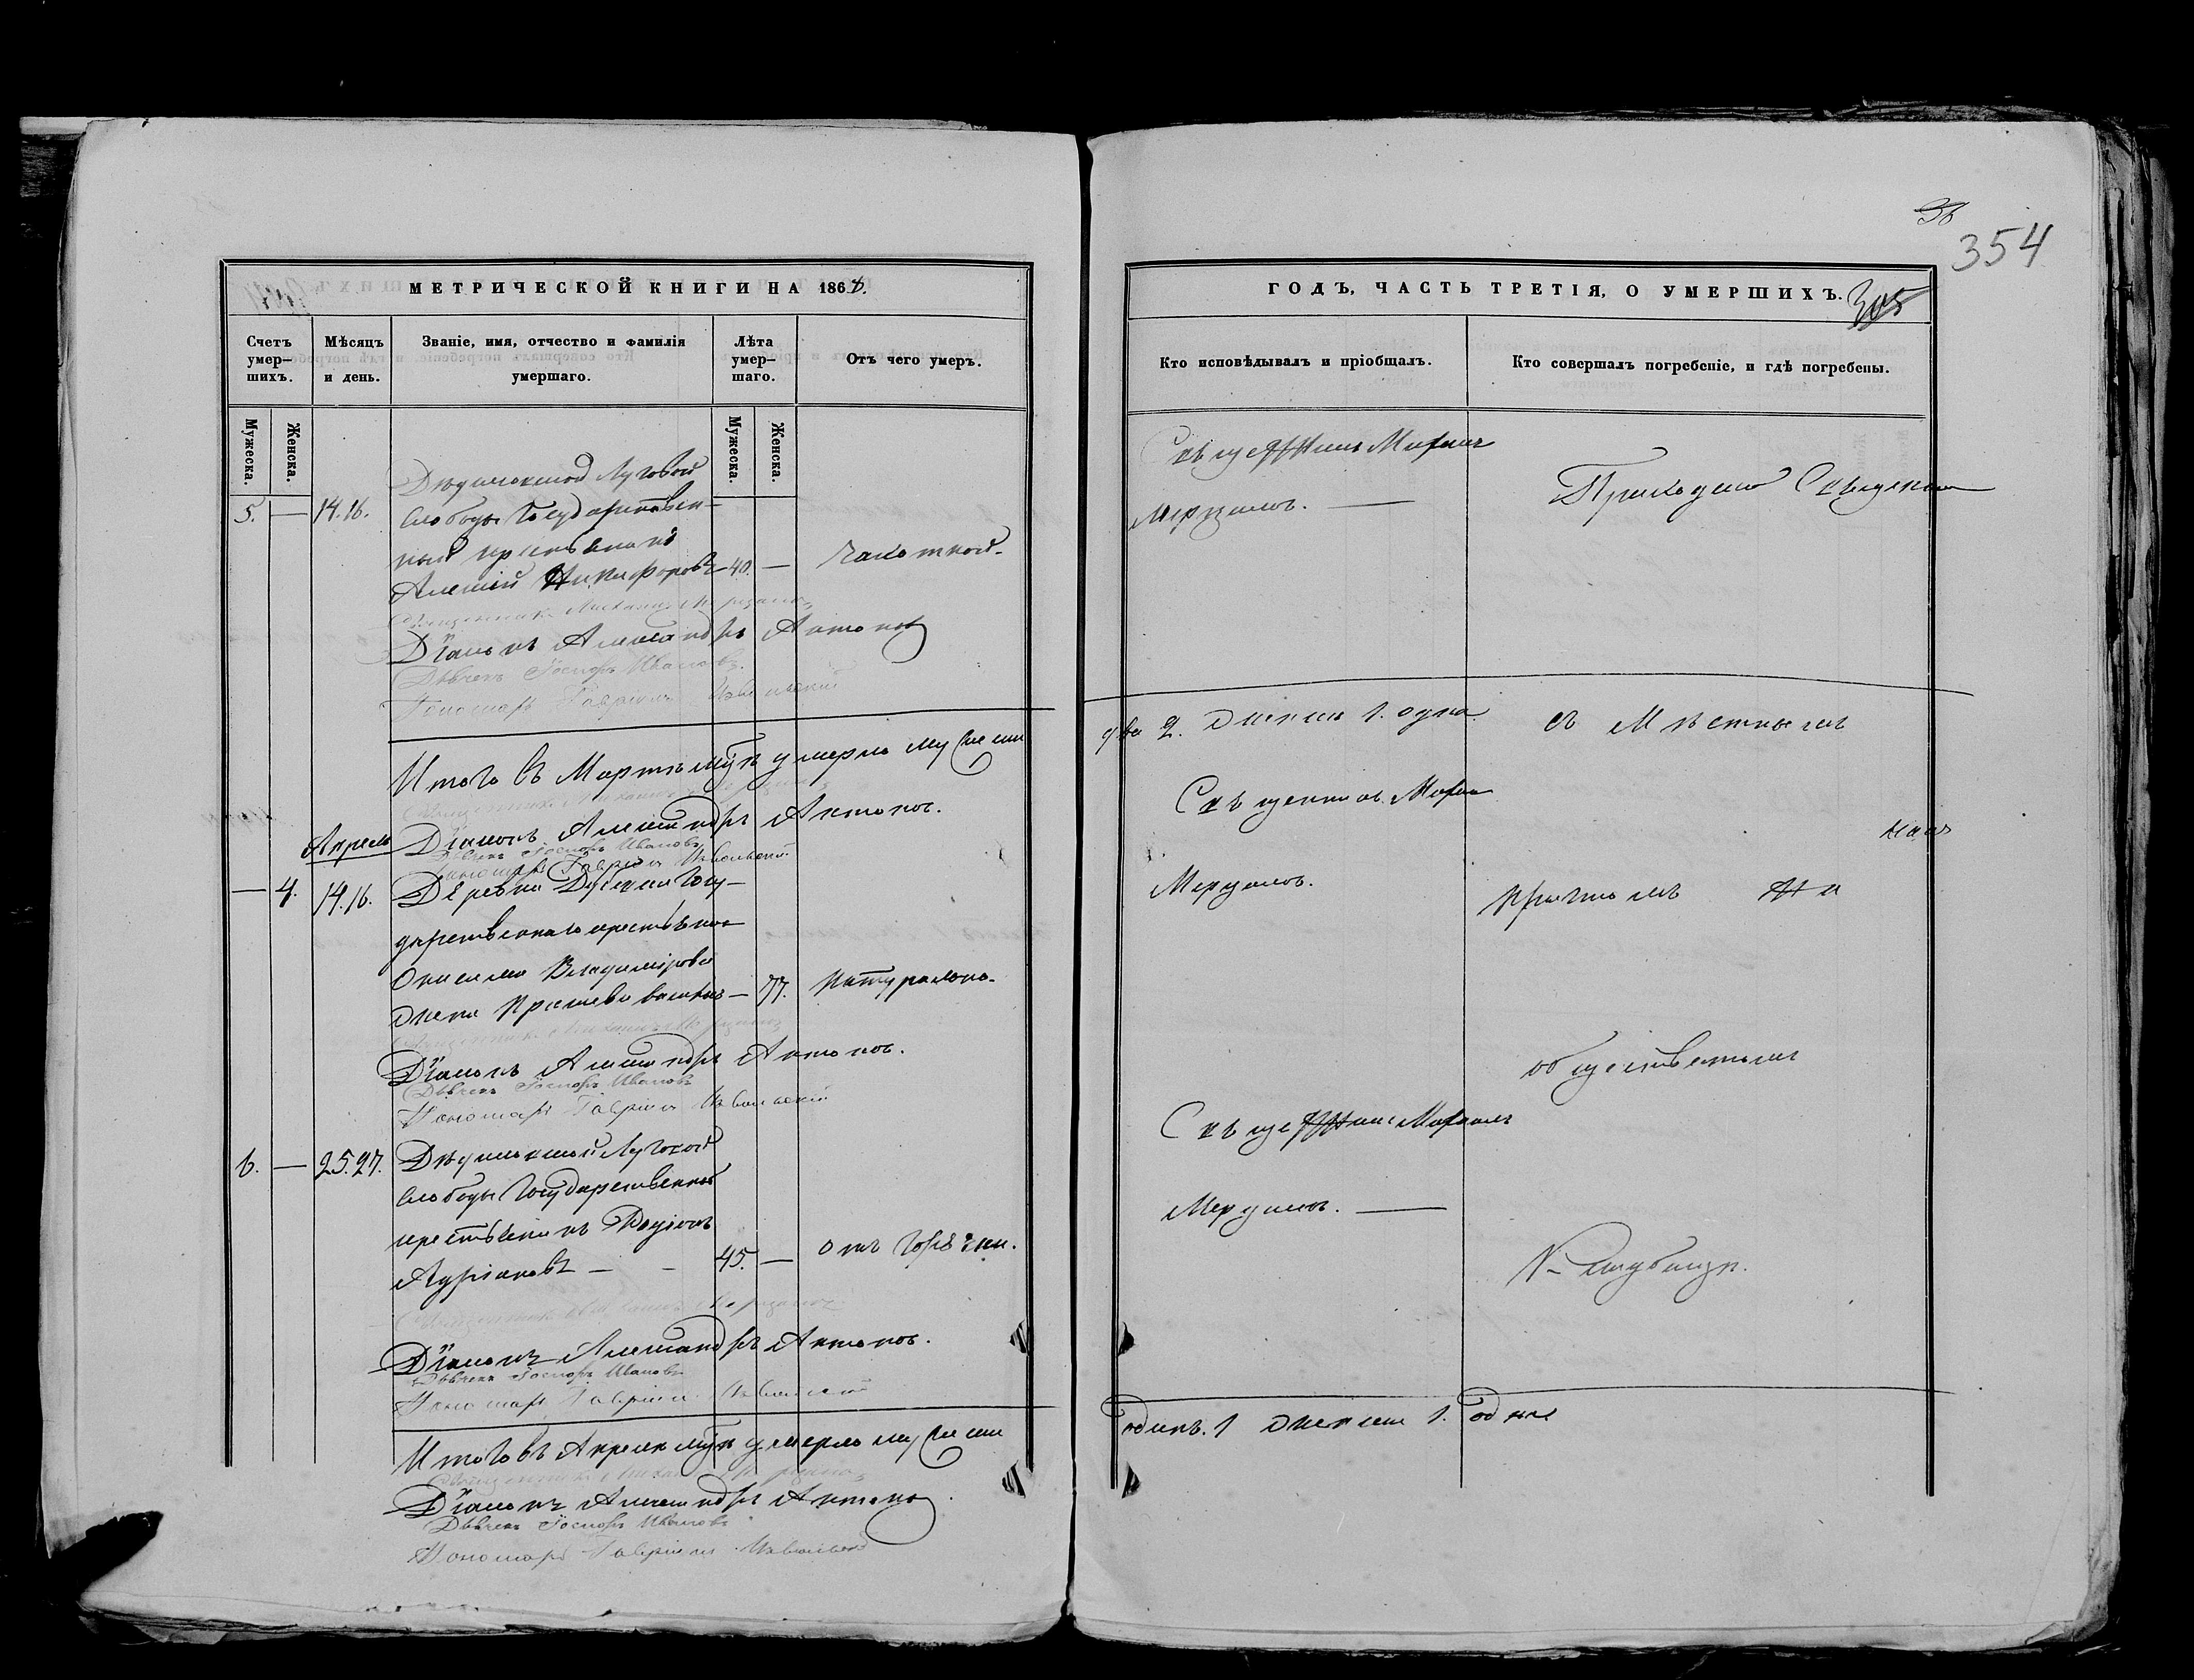 МЕТРИЧЕСКОЙ КНИГИ НА 1868.
Счетъ умер-
шихъ.
Мѣсяцъ
и день.
Званіе, имя, отчество и фамилія
умершаго.
Лѣта
умер-
шаго.
Отъ чего умеръ.
Мужеска.
Женска.
Мужеска.
Женска.
Дѣдиловской Луговой
5. — 14. 16. слободы Государствен-
ный крестьянинъ
Алексій Никифоровъ — 40. — чахоткой.
Священникъ Михаилъ Мерцаловъ
Діаконъ Александръ Антоновъ
Дьячекъ Іосифъ Ивановъ.
Пономарь Гавріилъ Извольскій
Итого въ Мартѣ мѣс. умерло мужеска
Священникъ Михаилъ Мерцаловъ
Діаконъ Александръ Антоновъ.
Апрель
Дьячекъ Іосифъ Ивановъ
Пономарь Гавріилъ Извольскій
— 4. 14. 16. Деревни Госу-
дарственнаго крестьянина
Онисима Владимірова
жена — 77. натурально.
Священникъ Михаилъ Мерцаловъ
Діаконъ Александръ Антоновъ.
Дьячекъ Іосифъ Ивановъ
Пономарь Гавріилъ Извольскій
6. — 25. 27. Дѣдиловской Луговой
слободы Государственный
крестьянинъ Родіонъ
Адріановъ — — 45. — отъ горячки.
Священникъ Михаилъ Мерцаловъ
Діаконъ Александръ Антоновъ.
Дьячекъ Іосифъ Ивановъ
Пономарь Гавріилъ Извольскій
Итого въ Апрелѣ мѣс. умерло мужеска
Священникъ Михаилъ Мерцаловъ
Діаконъ Александръ Антоновъ.
Дьячекъ Іосифъ Ивановъ
Пономарь Гавріилъ Извольскій
36
354
ГОДЪ, ЧАСТЬ ТРЕТІЯ, О УМЕРШИХЪ.
305
Кто исповѣдывалъ и пріобщалъ.
Кто совершалъ погребеніе, и гдѣ погребены.
Священникъ Михаилъ
Мерцаловъ. —
Приходскій Священникъ
два 2. женска 1. одна.
съ Мѣстнымъ
Священникъ Михаилъ
Мерцаловъ.
причтомъ на
общественномъ
Священникъ Михаилъ
Мерцаловъ. —
кладбищѣ.
одинъ. 1 женска 1. одна